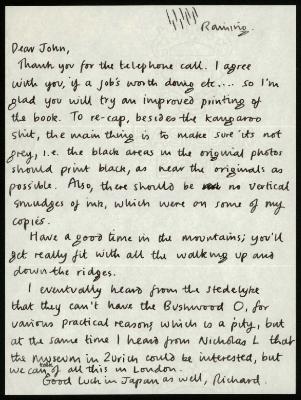 Raining.
Dear John,
Thank you for the telephone call. I agree
with you, if a job's worth doing etc.... so I'm
glad you will try an improved printing of
the book. To re-cap, besides the kangaroo
shit, the main thing is to make sure its not
grey, i.e. the black areas in the original photos
should print black, as near the originals as
possible. Also, there should be no vertical
smudges of ink, which were on some of my
copies.
Have a good time in the mountains; you'll
get really fit with all the walking up and
down the ridges.
I eventually heard from the Stedelyke
that they can't have the Bushwood O, for
various practical reasons, which is a pity, but
at the same time I heard from Nicholas L that
the museum in Zurich could be interested, but
we can talk of all this in London.
Good luck in Japan as well, Richard.